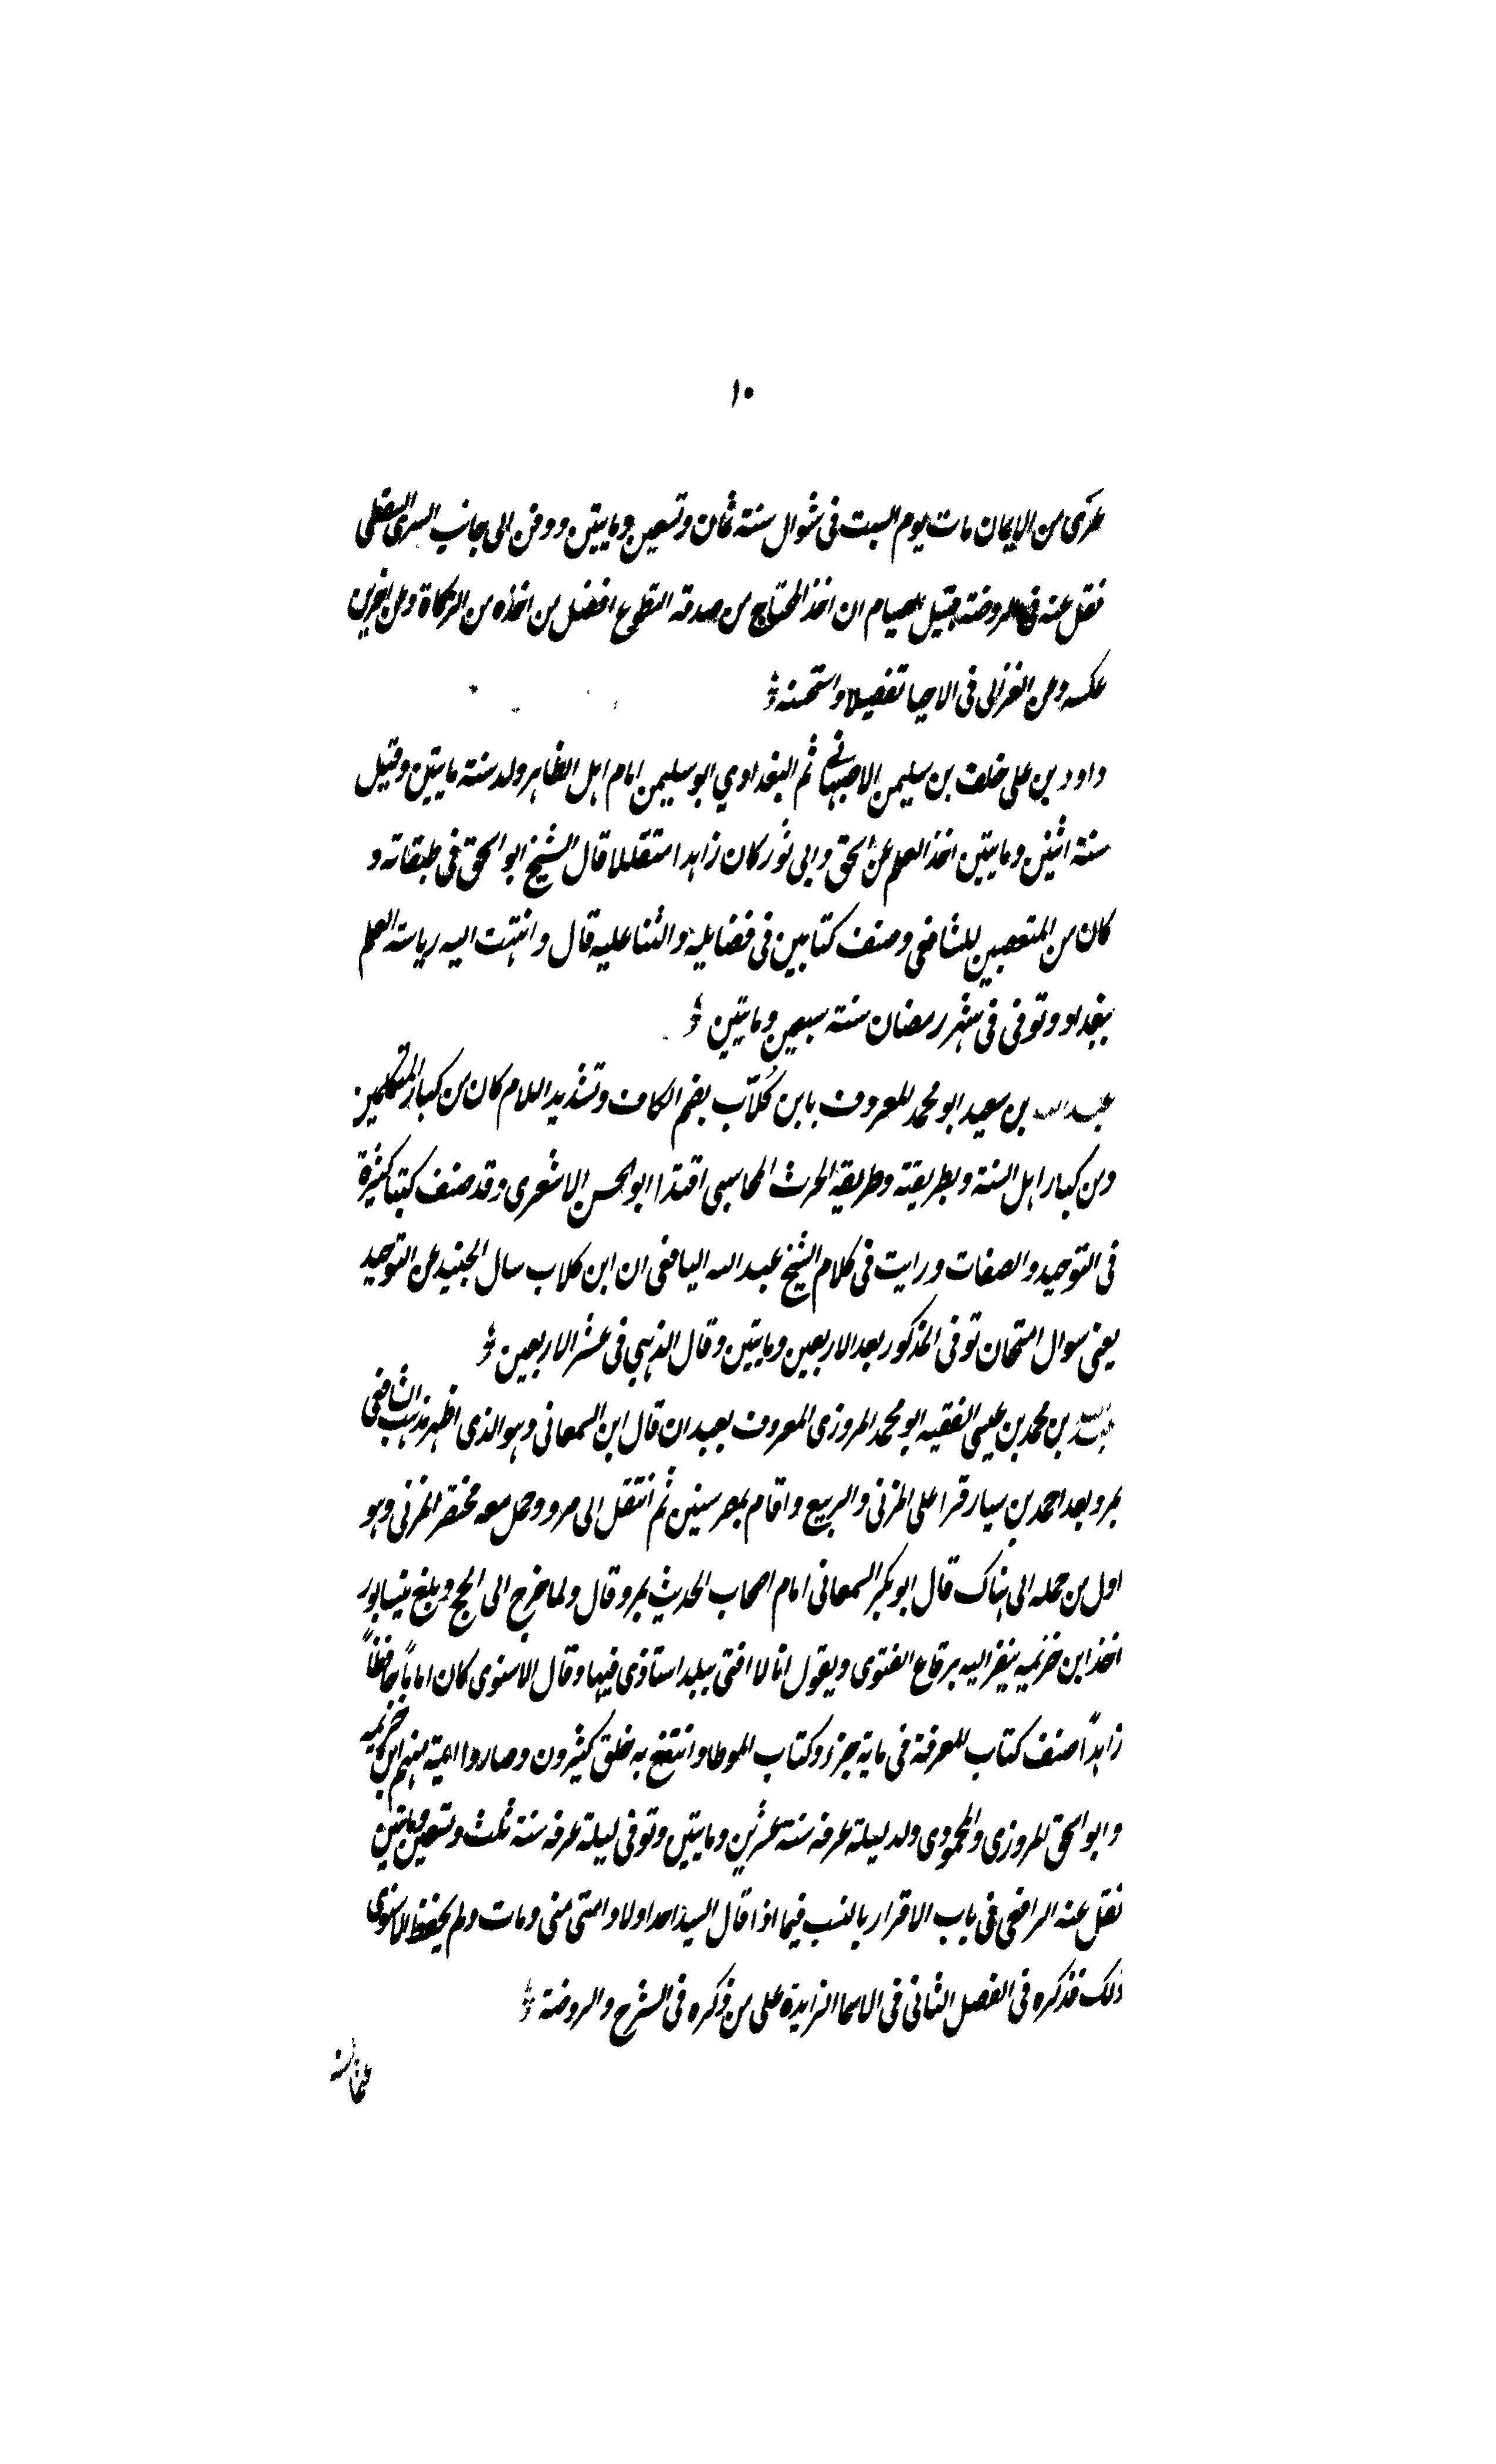 ١٠
عرى من الايمان مات يوم السبت فى شوال سنة ثمان وتسعين ومايتين ودفن الى جانب السرى السقطى
نقل عنه فى الروضة قبيل الصيام ان اخذ المحتاج من صدقة التطوع افضل من اخذه من الزكاة وعن اخرين
عكسه وعن الغزالى فى الاحيا تفصيلا واستحسنه
داود بن على خلف بن سليمن الاصبهانى ثم البغدادي ابو سليمن امام اهل الظاهر ولد سنة مايتين وقيل
سنة اثنين ومايتين اخذ العلم عن اسحق وابى ثور كان زاهدا متقللا قال الشيخ ابو اسحق فى طبقاته و
كان من المتعصبين للشافعى وصنف كتابين فى فضايله والثنا عليه قال وانتهت اليه رياسة العلم
ببغداد وتوفى فى شهر رمضان سنة سبعين ومايتين
عبد الله بن سعيد ابو محمد المعروف بابن كُلاّب بضم الكاف وتشديد اللام كان من كبار المتكلمين
ومن كبار اهل السنة وبطريقته وطريقة الحرث المحاسبى اقتدا ابو الحسن الاشعرى وقد صنف كتبا كثيرة
فى التوحيد والصفات ورايت فى كلام الشيخ عبد الله اليافعى ان ابن كلاب سال الجنيد عن التوحيد
يعنى سوال امتحان توفى المذكور بعد الاربعين ومايتين وقال الذهبى فى عشر الاربعين
عبد الله بن محمد بن عيسى الفقيه ابو محمد المروزى المعروف بعبدان قال ابن السمعانى وهو الذى اظهر مذهب الشافعى
بمرو بعد احمد بن سيار قرا على المزنى والربيع واقام بمصر سنين ثم انتقل الى مرو وحمل معه مختصر المزنى وهو
اول من حمله الى هناك قال ابو بكر السمعانى امام اصحاب الحديث بمرو قال ولما خرج الى الحج وبلغ نيسابور
اخذ ابن خزيمه ينفذ اليه برقاع الفتوى ويقول انا لا افتى ببلد استاذى فيها وقال الاسنوى كان اماماً حافظاً
زاهداً صنف كتاب المعرفة فى ماية جزء وكتاب الموطا وانتفع به خلق كثيرون وصاروا ايمة منهم ابن خزيمه
وابو اسحق المروزى والمحمودى ولد ليلة عرفه سنة عشرين ومايتين وتوفى ليلة عرفه سنة ثلث وتسعين ومايتين
نقل عنه الرافعى فى باب الاقرار بالنسب فيما اذا قال السيد احد اولاد امتى منى ومات ولم يحفظ الاسنوى
ذلك فذكره فى الفصل الثانى فى الاسما الزايدة على من ذكره فى الشرح والروضة